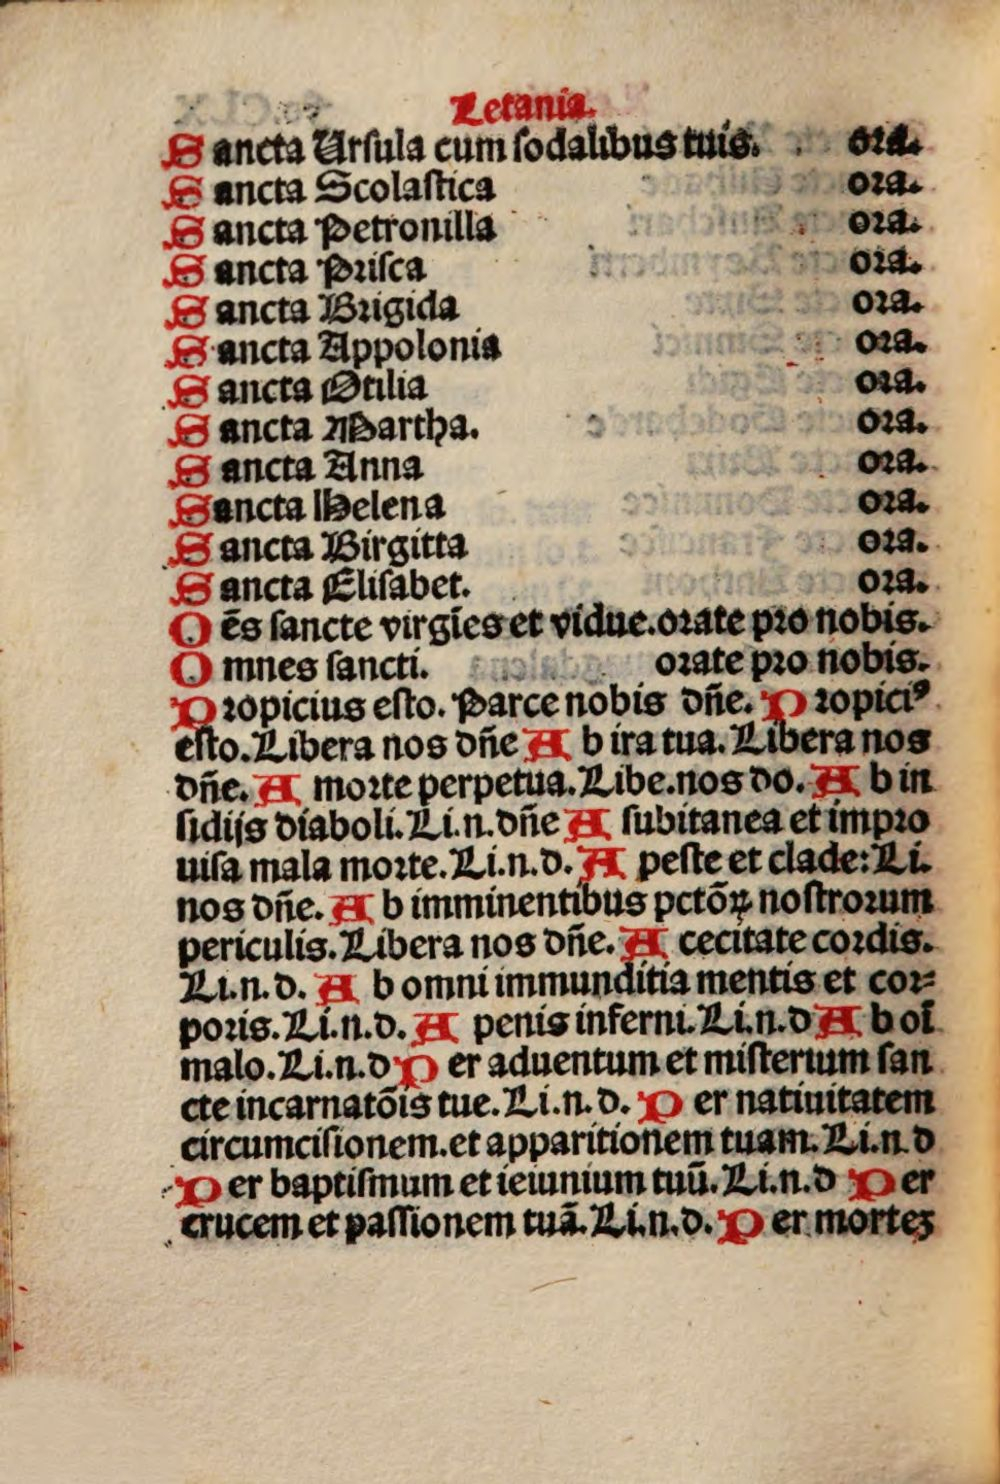 Letania.
Sancta Ursula cum sodalibus tuis. ora.
Sancta Scolastica ora.
Sancta Petronilla ora.
Sancta Prisca ora.
Sancta Brigida ora.
Sancta Appolonia ora.
Sancta Otilia ora.
Sancta Martha. ora.
Sancta Anna ora.
Sancta Helena ora.
Sancta Birgitta ora.
Sancta Elisabet. ora.
Oēs sancte virgīes et vidue. orate pro nobis.
Omnes sancti. orate pro nobis.
Propicius esto. Parce nobis dñe. Propiciꝰ
esto. Libera nos dñe Ab ira tua. Libera nos
dñe. A morte perpetua. Libe. nos do. Ab in
sidijs diaboli. Li. n. dñe A subitanea et impro
uisa mala morte. Li. n. d. A peste et clade: Li.
nos dñe. Ab imminentibus pctōꝝ nostrorum
periculis. Libera nos dñe. A cecitate cordis.
Li. n. d. Ab omni immunditia mentis et cor⸗
poris. Li. n. d. A penis inferni. Li. n. d Ab oī
malo. Li. n. d Per aduentum et misterium san
cte incarnatōis tue. Li. n. d. Per natiuitatem
circumcisionem. et apparitionem tuam. Li. n. d
Per baptismum et ieiunium tuū. Li. n. d Per
crucem et passionem tuā. Li. n. d. Per morteꝫ